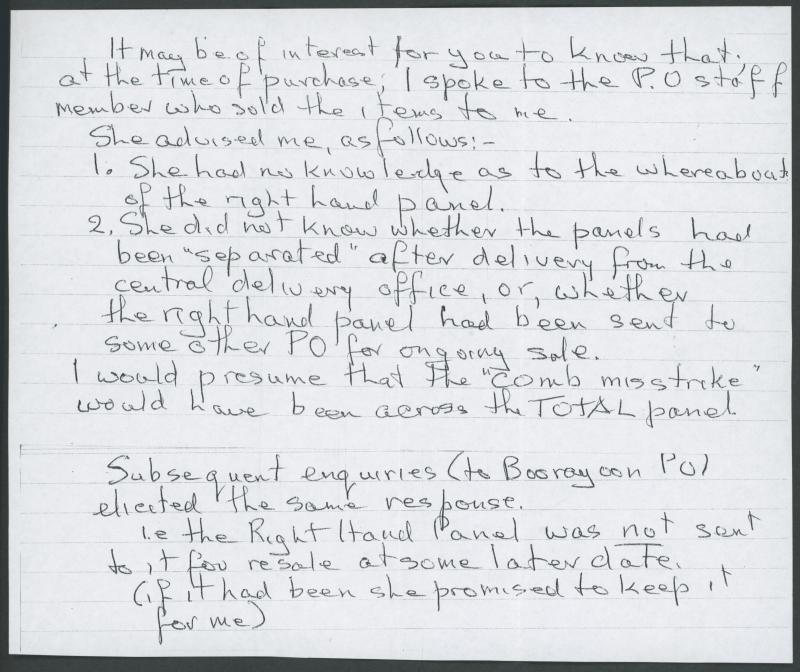 It may be of interest for you to know that,
at the time of purchase, I spoke to the P.O staff
member who sold the items to me.
She advised me, as follows:-
1. She had no knowledge as to the whereabout
of the right hand panel.
2. She did not know whether the panels had
been "separated" after delivery from the
central delivery office, or, whether
the right hand panel had been sent to
some other PO for ongoing sale.
I would presume that the "comb misstrike"
would have been across the TOTAL panel.
Subsequent enquiries (to Booragoon PO)
elicited the same response.
i.e the Right Hand Panel was not sent
to it for resale at some later date.
(if it had been she promised to keep it
for me)